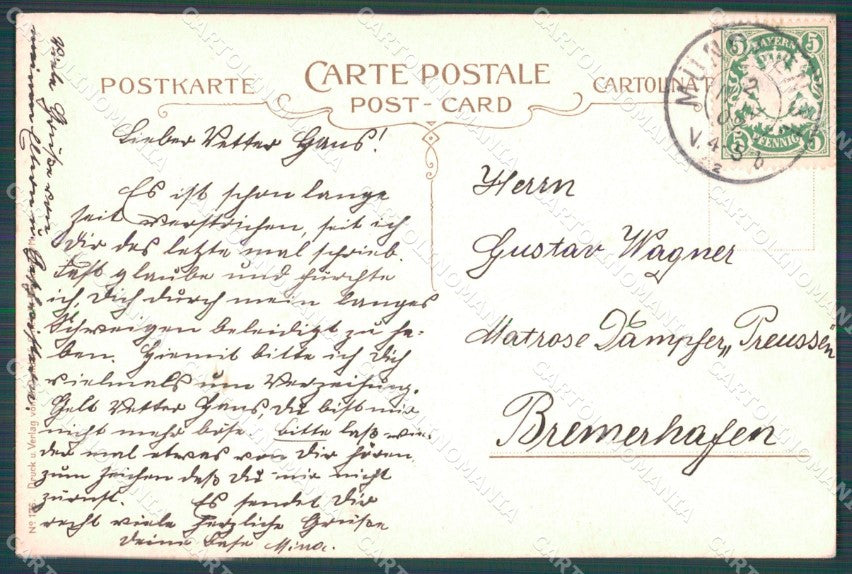 POSTKARTE
CARTE POSTALE
POST-CARD
CARTOLINA
BAYERN
5 5
5 PFENNIG 5
MÜNCHEN
V. 4-5
b
Lieber Vetter Hans!
Es ist schon lange
Zeit verstrichen, seit ich
Dir das letzte mal schrieb.
Fast glaube und fürchte
ich, Dich durch mein langes
Schweigen beleidigt zu ha-
ben. Hiemit bitte ich Dich
vielmals um Verzeihung.
Gelt Vetter Hans, Du bist mir
nicht mehr böse. bitte laß wie-
der mal etwas von Dir hören,
zum Zeichen daß Du mir nicht
zürnst. Es sendet Dir
recht viele herzliche Grüsse
Deine Base Mina.
Viele Grüße von
meinen Eltern u. Geschwistern.
Herrn
Gustav Wagner
Matrose Dampfer „Preussen
Bremerhafen
Druck u. Verlag von
CARTOLINOMANIA